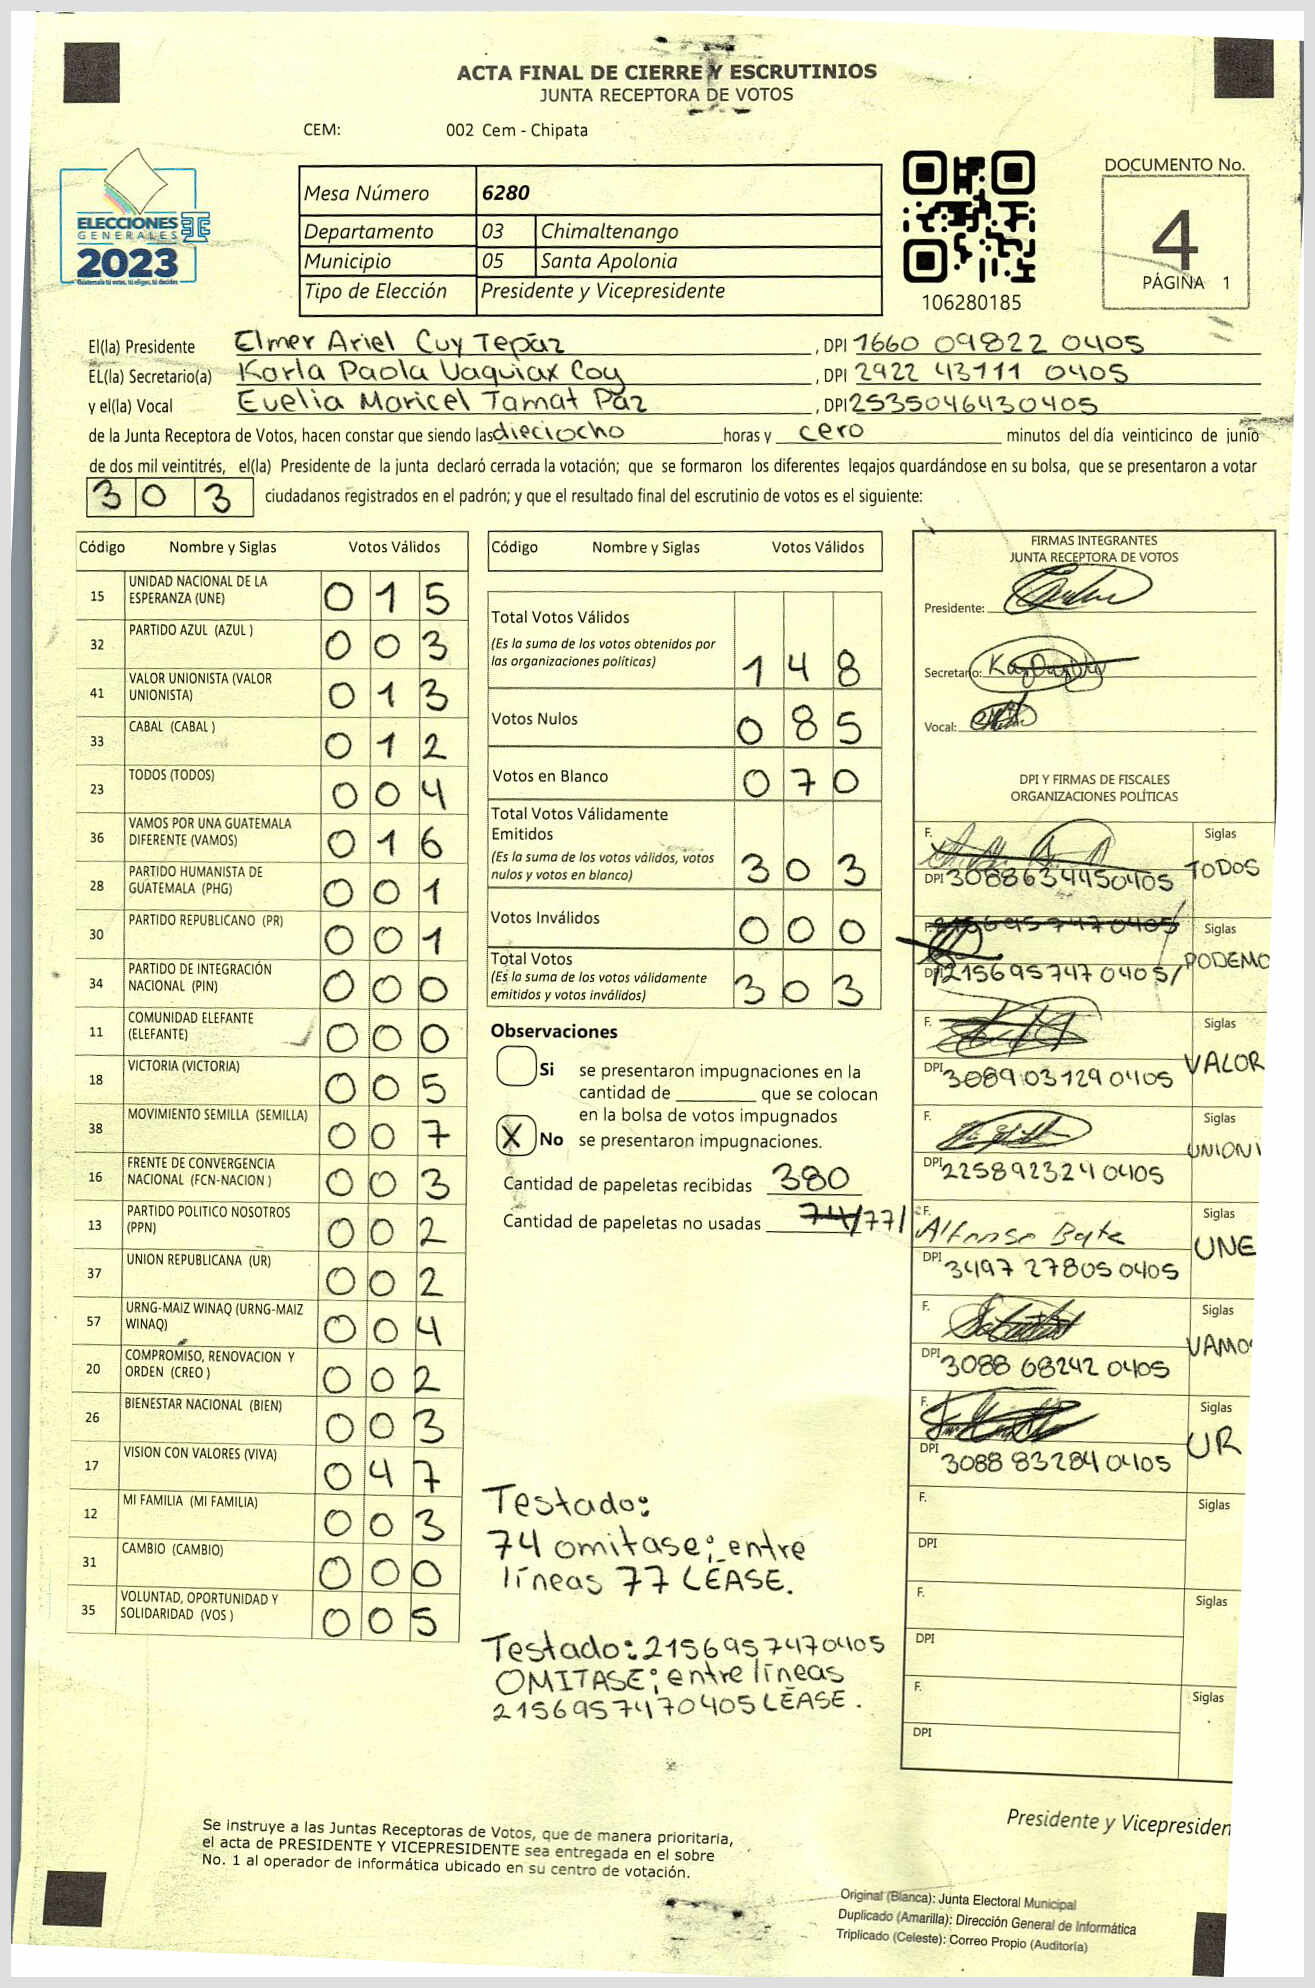 ACTA FINAL DE CIERRE Y ESCRUTINIOS
JUNTA RECEPTORA DE VOTOS
CEM: 002 Cem - Chipata
ELECCIONES
GENERALES TSE
2023
Guatemala tú votas, tú eliges, tú decides
Mesa Número 6280
Departamento 03 Chimaltenango
Municipio 05 Santa Apolonia
Tipo de Elección Presidente y Vicepresidente
106280185
DOCUMENTO No.
4
PÁGINA 1
El(la) Presidente Elmer Ariel Cuy Tepáz, DPI 1660 09822 0405
EL(la) Secretario(a) Karla Paola Vaquiax Coy, DPI 2922 43111 0405
y el(la) Vocal Evelia Maricel Tamat Paz, DPI 2535046430405
de la Junta Receptora de Votos, hacen constar que siendo las dieciocho horas y cero minutos del día veinticinco de junio
de dos mil veintitrés, el(la) Presidente de la junta declaró cerrada la votación; que se formaron los diferentes legajos guardándose en su bolsa, que se presentaron a votar
3 0 3 ciudadanos registrados en el padrón; y que el resultado final del escrutinio de votos es el siguiente:
Código Nombre y Siglas Votos Válidos
15 UNIDAD NACIONAL DE LA
ESPERANZA (UNE) 0 1 5
32 PARTIDO AZUL (AZUL ) 0 0 3
41 VALOR UNIONISTA (VALOR
UNIONISTA) 0 1 3
33 CABAL (CABAL ) 0 1 2
23 TODOS (TODOS) 0 0 4
36 VAMOS POR UNA GUATEMALA
DIFERENTE (VAMOS) 0 1 6
28 PARTIDO HUMANISTA DE
GUATEMALA (PHG) 0 0 1
30 PARTIDO REPUBLICANO (PR) 0 0 1
34 PARTIDO DE INTEGRACIÓN
NACIONAL (PIN) 0 0 0
11 COMUNIDAD ELEFANTE
(ELEFANTE) 0 0 0
18 VICTORIA (VICTORIA) 0 0 5
38 MOVIMIENTO SEMILLA (SEMILLA) 0 0 7
16 FRENTE DE CONVERGENCIA
NACIONAL (FCN-NACION ) 0 0 3
13 PARTIDO POLITICO NOSOTROS
(PPN) 0 0 2
37 UNION REPUBLICANA (UR) 0 0 2
57 URNG-MAIZ WINAQ (URNG-MAIZ
WINAQ) 0 0 4
20 COMPROMISO, RENOVACION Y
ORDEN (CREO ) 0 0 2
26 BIENESTAR NACIONAL (BIEN) 0 0 3
17 VISION CON VALORES (VIVA) 0 4 7
12 MI FAMILIA (MI FAMILIA) 0 0 3
31 CAMBIO (CAMBIO) 0 0 0
35 VOLUNTAD, OPORTUNIDAD Y
SOLIDARIDAD (VOS ) 0 0 5
Código Nombre y Siglas Votos Válidos
Total Votos Válidos
(Es la suma de los votos obtenidos por
las organizaciones políticas) 1 4 8
Votos Nulos 0 8 5
Votos en Blanco 0 7 0
Total Votos Válidamente
Emitidos
(Es la suma de los votos válidos, votos
nulos y votos en blanco) 3 0 3
Votos Inválidos 0 0 0
Total Votos
(Es la suma de los votos válidamente
emitidos y votos inválidos) 3 0 3
Observaciones
Si se presentaron impugnaciones en la
cantidad de ________ que se colocan
en la bolsa de votos impugnados
X No se presentaron impugnaciones.
Cantidad de papeletas recibidas 380
Cantidad de papeletas no usadas 74/77/
Testado:
74 omitase; entre
líneas 77 LÉASE.
Testado: 2156957470405
OMITASE; entre líneas
2156957470405 LÉASE.
FIRMAS INTEGRANTES
JUNTA RECEPTORA DE VOTOS
Presidente:
Secretario:
Vocal:
DPI Y FIRMAS DE FISCALES
ORGANIZACIONES POLÍTICAS
F. Siglas
DPI 3088634450405 TODOS
F. 2156957470405 Siglas
DPI 2156957470405/ PODEMO
F. Siglas
DPI 3089031290405 VALOR
F. Siglas
DPI 2258923240405 UNIONI
F. Siglas
DPI 3497 27805 0405 UNE
F. Siglas
DPI 3088 68242 0405 VAMOS
F. Siglas
DPI 3088 83284 0405 UR
F. Siglas
DPI
F. Siglas
DPI
F. Siglas
DPI
Presidente y Vicepresiden
Se instruye a las Juntas Receptoras de Votos, que de manera prioritaria,
el acta de PRESIDENTE Y VICEPRESIDENTE sea entregada en el sobre
No. 1 al operador de informática ubicado en su centro de votación.
Original (Blanca): Junta Electoral Municipal
Duplicado (Amarilla): Dirección General de Informática
Triplicado (Celeste): Correo Propio (Auditoría)